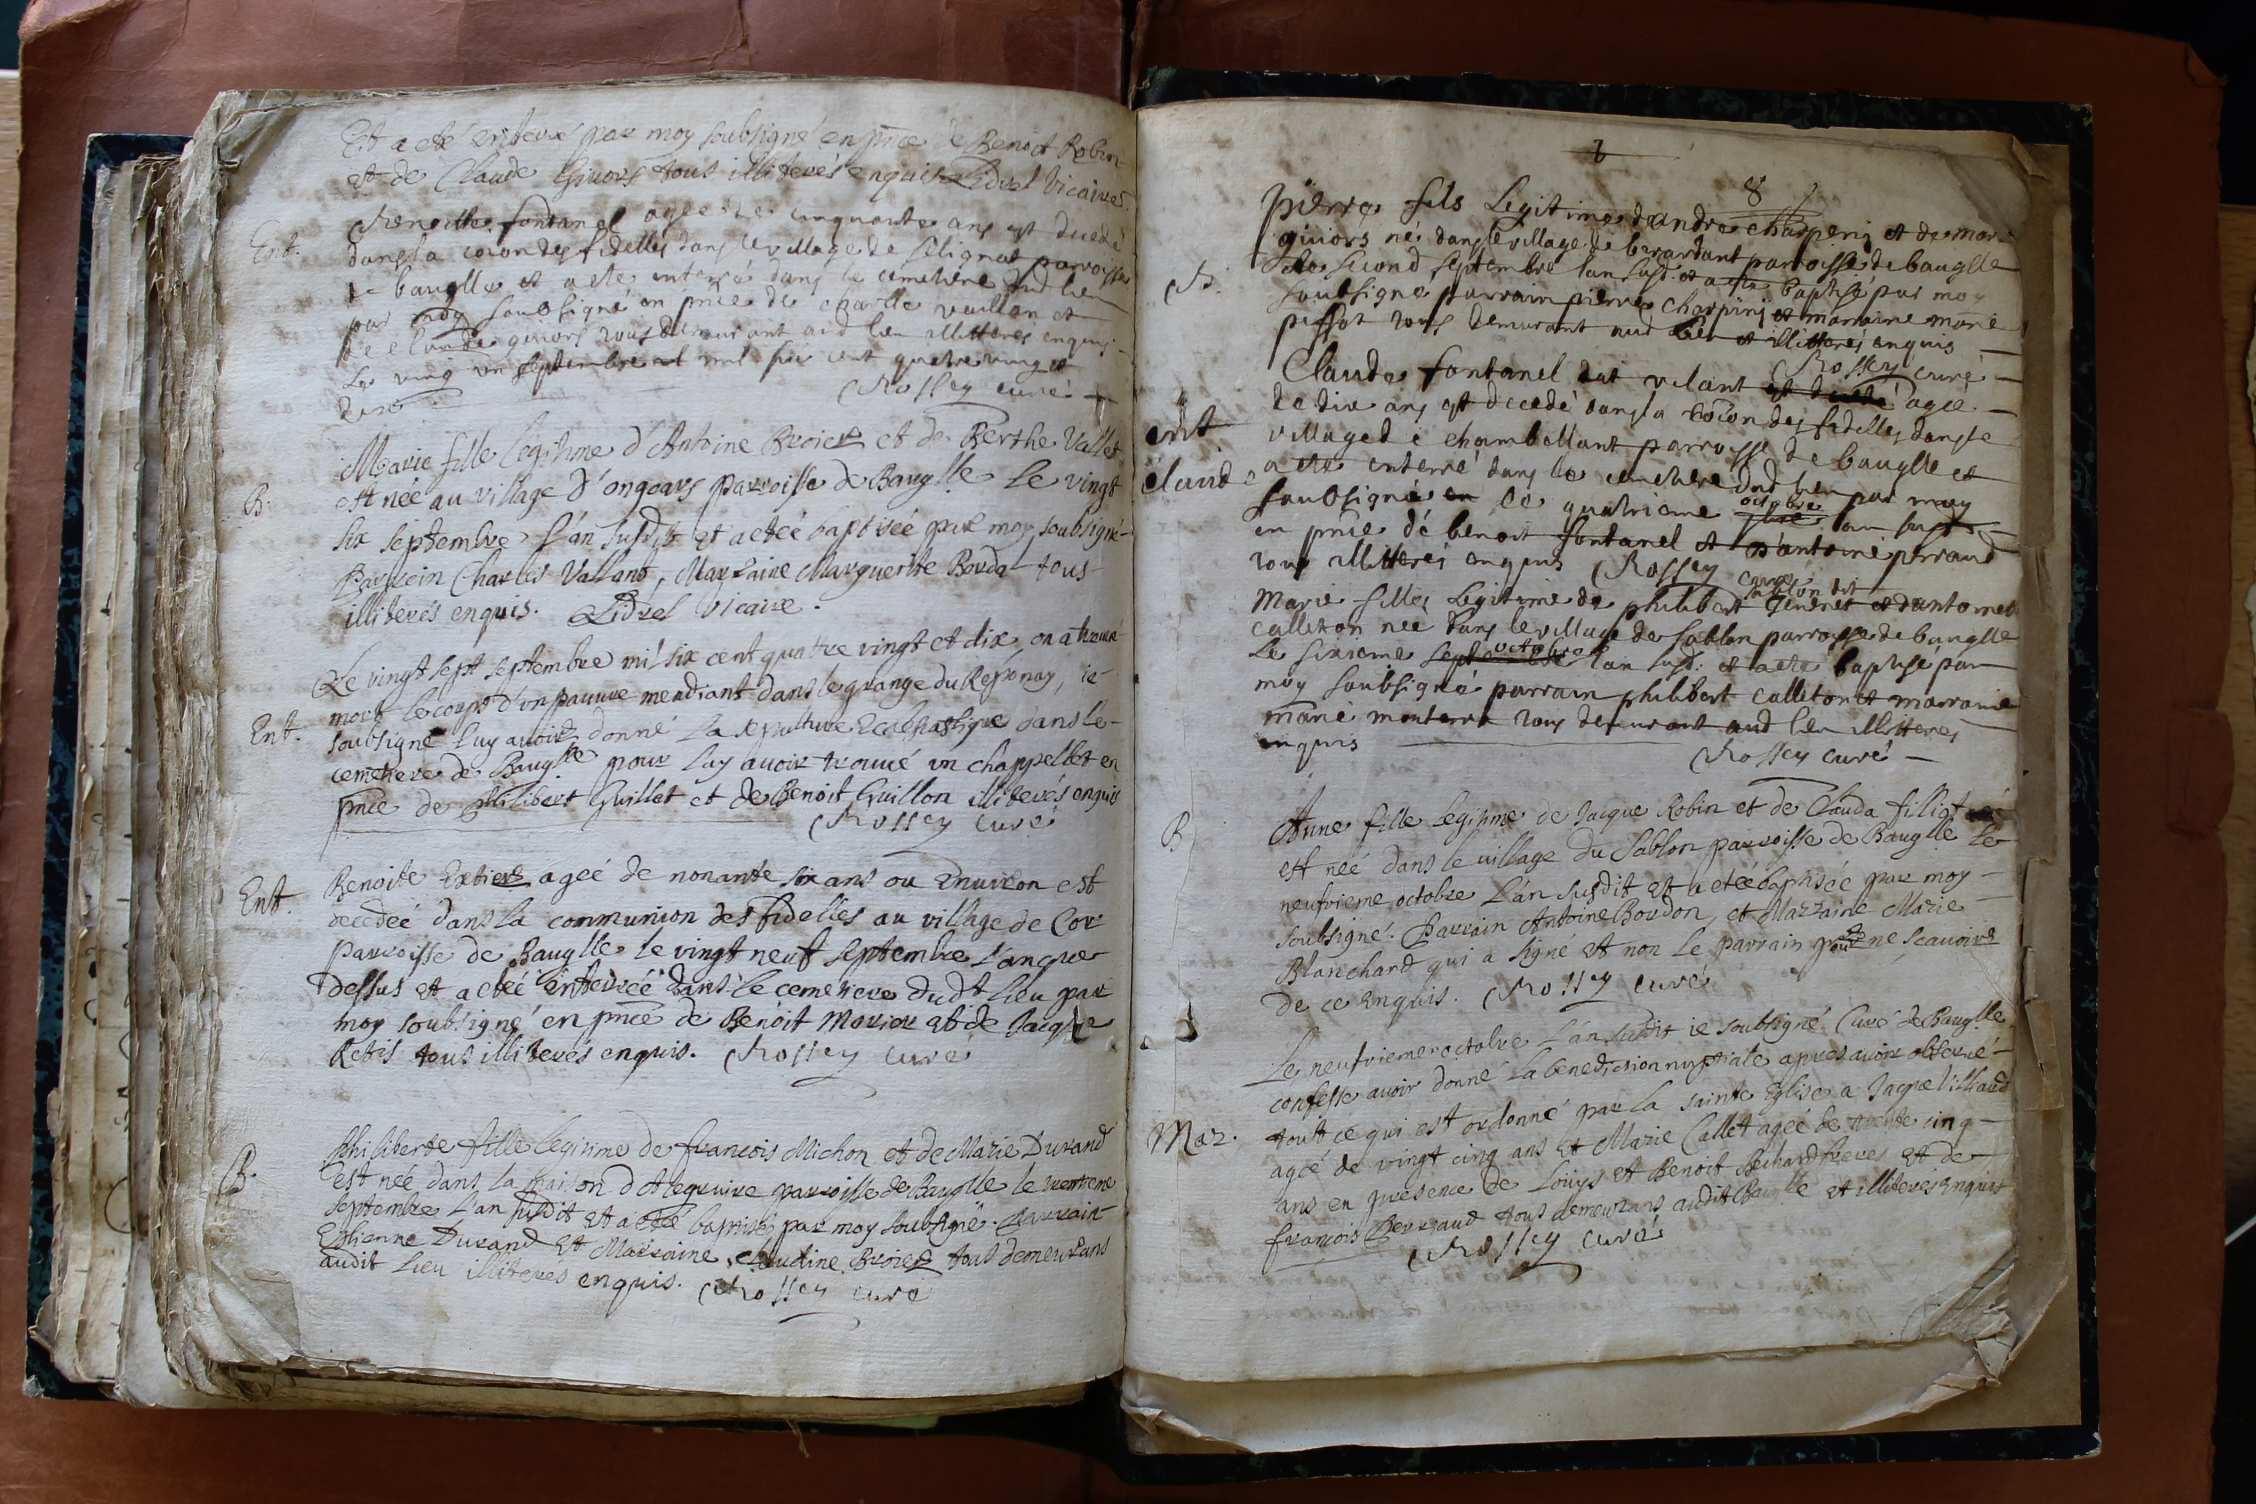 Et a eté enterré par moy soubsigné en pnce de Benoit Robin
et de Claude Givors tous illiterés enquis Lidrel Vicaire.
Ent.
Benoitte fontanel agee de cinquante ans est decedé
dans la coion des fidelles dans le village de Selignat parroisse
de bauglle et a ete enterré dans le cemetiere dud lieu
par moy soubsigné en pnce de charle vaillan et
de claude givors tous demeurant aud lieu illitteres enquis
Le ving un septembre mil six cent quatre ving et
dix Rossey curé
B.
Marie fille legitime d'Antoine Broier et de Berthe Vallet
est née au village d'ongears parroisse de Bauglle le vingt
six septembre L'an susdit et a eteé baptiseé par moy soubsigné
Parrain Charles Valland, Marraine Marguerite Bordat tous
illiterés enquis. Lidrel Vicaire.
Ent.
Le vingt sept septembre mil six cent quattre vingt et dix on a trouué
mort le corps d'un pauure mendiant dans le grange du Reponay, ie
soubsigné luy avoir donné La sepulture Ecclesiastique dans le
cemetiere de Bauglle pour luy avoir trouué un chappellet en
pnce de Philibert Guillet et de Benoit Guillon illiterés enquis
Rossey curé
Ent.
Benoite Extier ageé de nonante six ans ou Enuiron est
decedeé dans la communion des fidelles au village de Cor
Parroisse de Bauglle le vingt neuf septembre L'an que
dessus et a eteé enterreé dans le cemetiere dudt lieu par
moy soubsigné en pnce de Benoit Morier et de Jacque
Retis tous illiterés enquis. Rossey curé
B.
Philiberte fille legitime de francois Michon et de Marie Durand
est née dans la maison d'Alegruire parroisse de Bauglle le trentene
septembre L'an susdit et a eté baptisé par moy soubsigné. Parrain
Estienne Durand Et Marraine Claudine Broier tous demeurans
audit Lieu illiterés enquis. Rossey curé
8
B.
pierre fils Legitime d'andre charpeng et de marie
givors né dans le village de berardant parroisse de bauglle
le second septembre lan susd. et a ete baptisé par moy
soubsigné parrain pierre charping et marraine marie
pissot tous demurant aud lieu et illitteres enquis
Rossey curé
ent
claude
Claude fontanel dit volant est decedé agee
de dix ans est decedé dans la coion des fidelles dans le
village de chambellant parroisse de bauglle et
a ete enterré dans le cemetiere dud lieu par moy
soubsigné en le quatrieme octobre lan susd
en pnce de benoit fontanel et d'antoine perraud
tous illitterés enquis Rossey curé
Marie fille Legitime de philibert Genevet sablon dit et dantoinet
calleton neé dans le village de sablon parroisse de bauglle
le sixieme octobre lan susd. et a ete baptisé par
moy soubsigné parrain philibert calleton et marraine
marie monterra tous demeurant aud lieu illitteres
enquis
Rossey curé
B
Anne fille legitime de Jacque Robin et de Clauda filliat
est neé dans le village du Sablon parroisse de Bauglle le
neufvieme octobre L'an susdit et a eteé baptiseé par moy
soubsigné. Parrain Antoine Bordon, et Marraine Marie
Blanchard qui a signé et non le parrain pour ne scauoir
de ce enquis. Rossey curé
Mar.
Le neufviemer octobre L'an susdit ie soubsigné Curé de Bauglle
confesse avoir donné La benediction nuptiale apres auoir obserué
tout ce qui est ordonné par la sainte Eglise a Jacque Villiaud
agé de vingt cinq ans et Marie Callet ageé de trente cinq
ans en presence de Louys et Benoit Bechard freres et de
francois Perraud tous demeurans audit Bauglle et illiterés enquis
Rossey curé